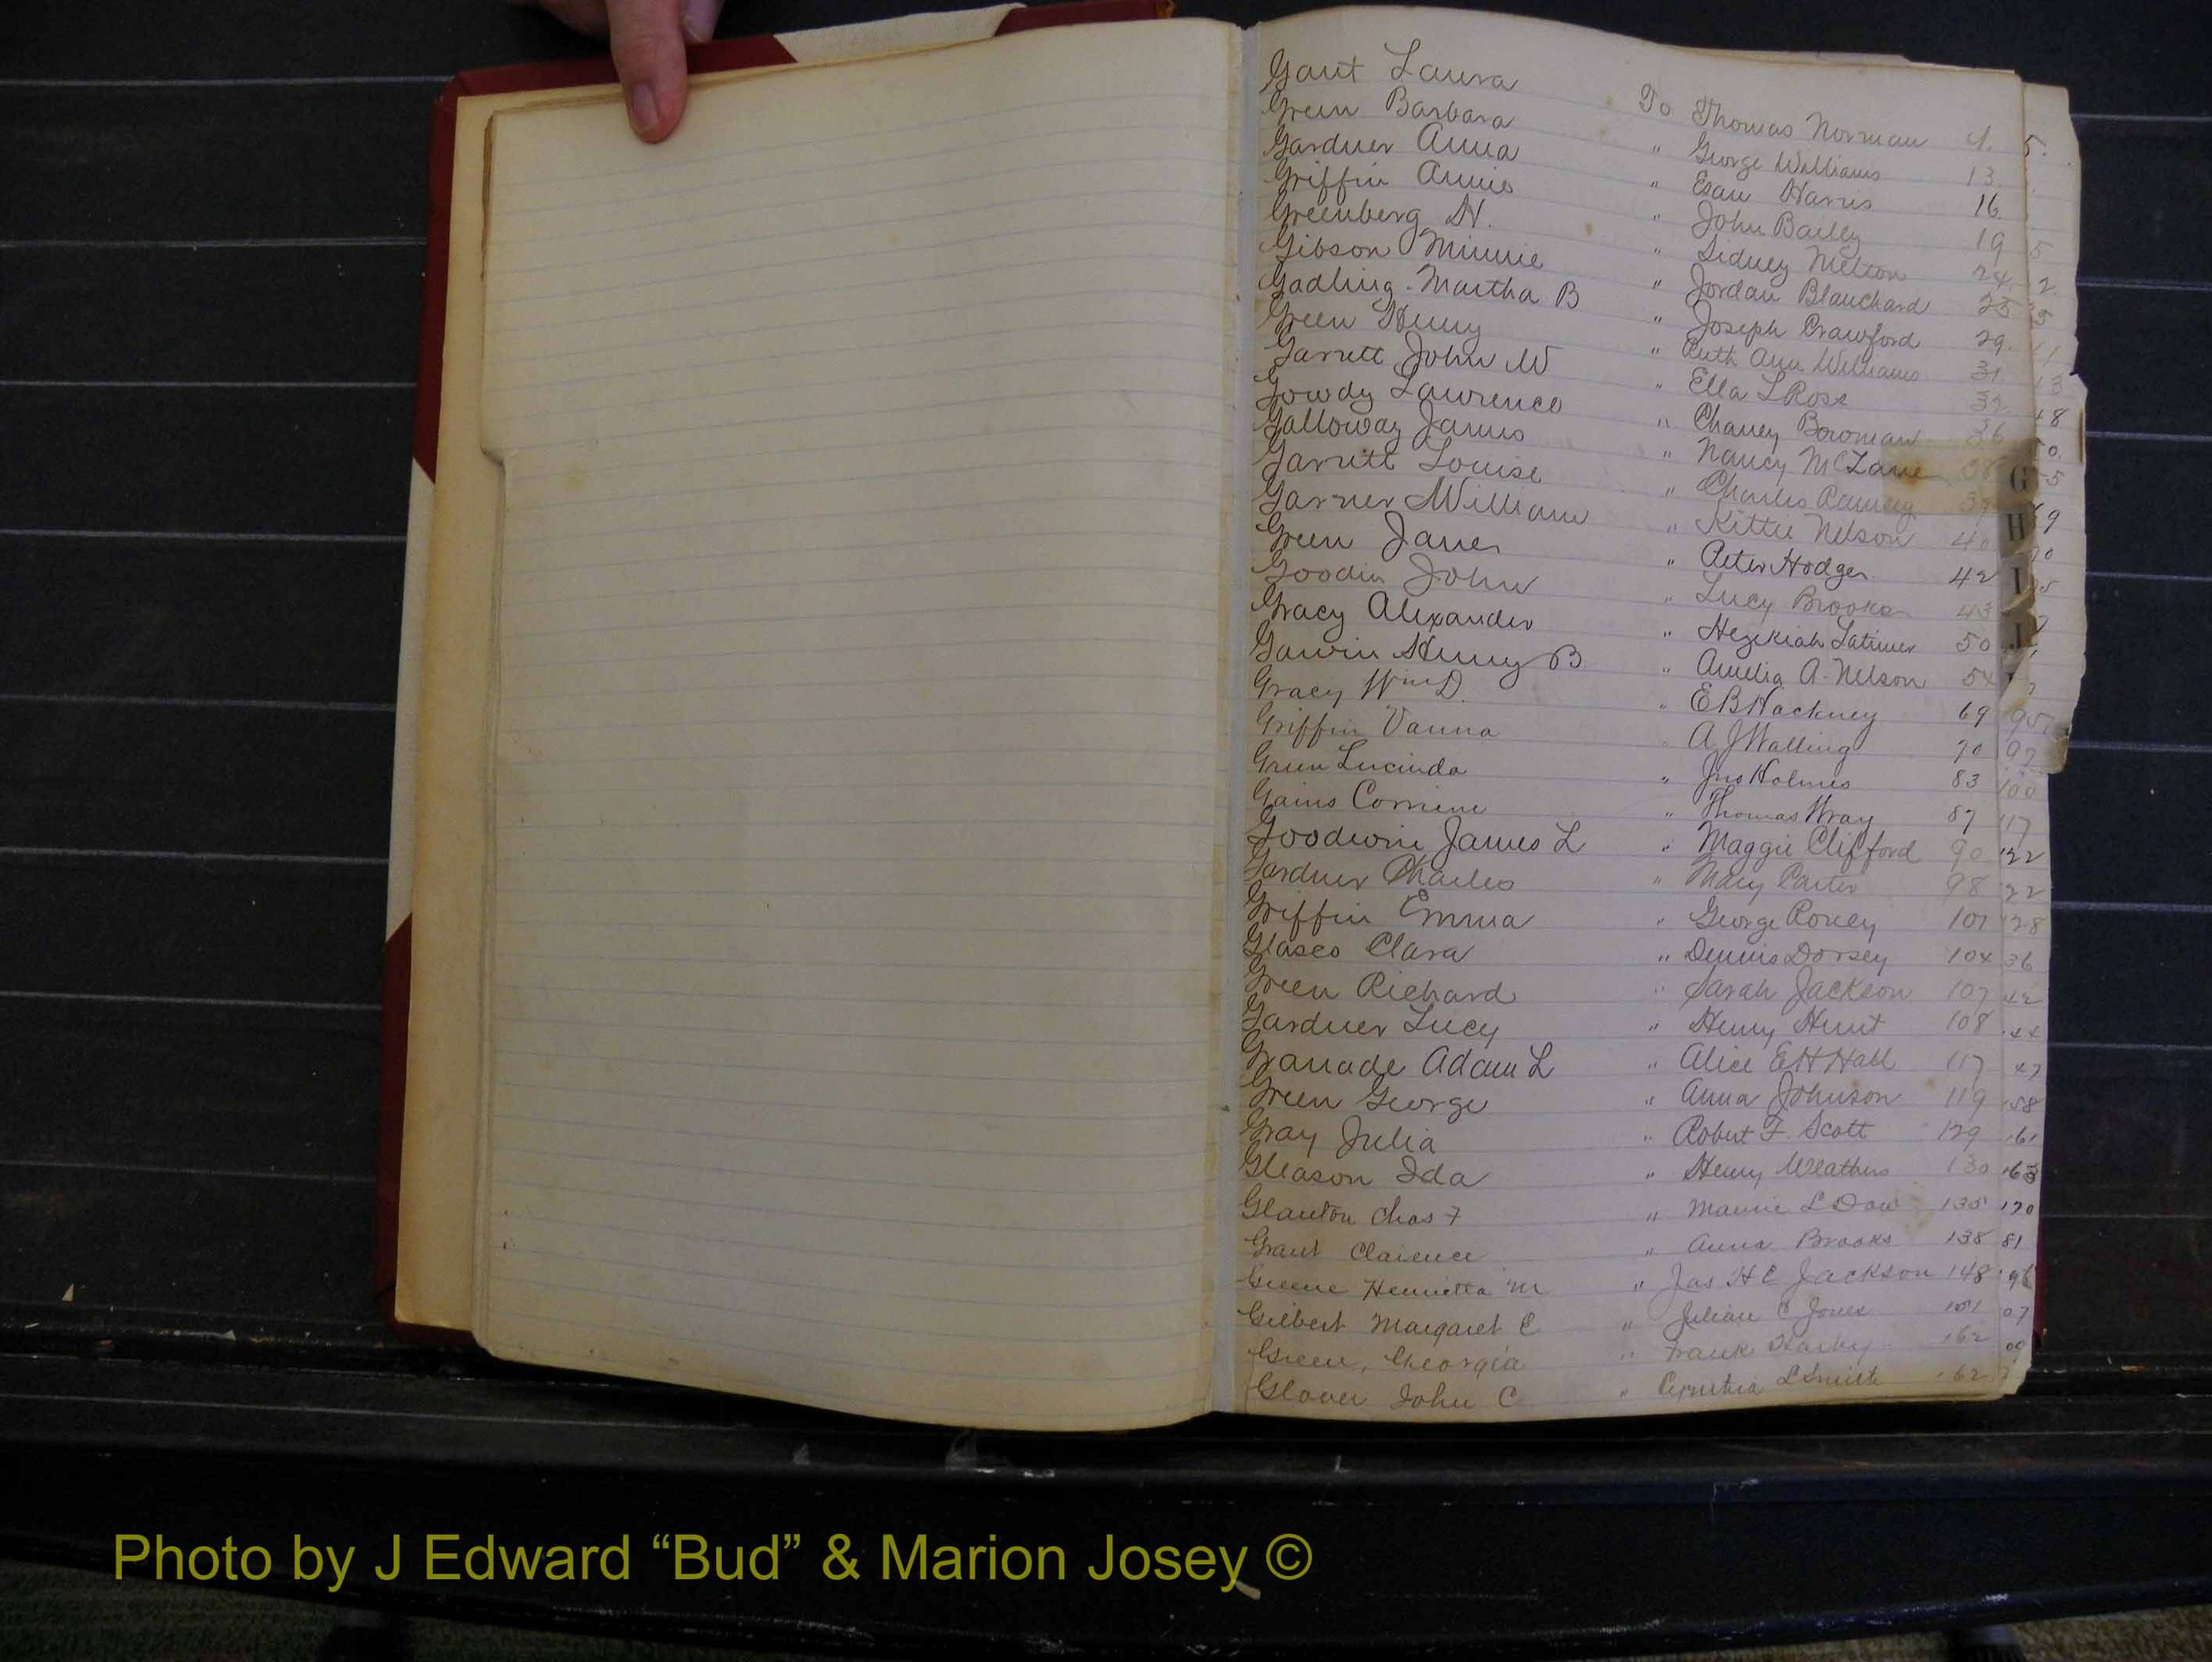 Gant Laura To Thomas Norman 4.
Green Barbara " George Williams 13
Gardner Anna " Esau Harris 16
Griffin Annie " John Bailey 19
Greenberg H. " Sidney Melton 24
Gibson Minnie " Jordan Blanchard 25
Gadling Martha B " Joseph Crawford 29
Green Henry " Ruth Ann Williams 31
Garrett John W " Ella L Rose 32
Gowdy Lawrence " Chaney Bowman 36
Galloway James " Nancy McLane 38
Garrett Louise " Charles Ramsey 39
Garner William " Kittie Nelson 40
Green Janes " Peter Hodges 42
Goodin John " Lucy Brooks 43
Gracy Alexander " Hezekiah Latimer 50
Garvin Henry B. " Amelia A. Nelson 54
Gracy Wm D. " E B Hackney 69
Griffin Vanna " A J Walling 70
Green Lucinda " Jno Holmes 83
Gains Corrine " Thomas Wray 87
Goodwin James L " Maggie Clifford 90
Gardner Charles " Mary Carter 98
Griffin Emma " George 101
Glasco Clara " Dennis Dorsey 104
Green Richard " Sarah Jackson 107
Gardner Lucy " Henry Hunt 108
Granade Adam L " Alice E H Hall 117
Green George " Anna Johnson 119
Gray Julia " Robert F. Scott 129
Gleason Ida " Henry Weathers 130
Glanton Chas F " Mamie L Dow 135
Grant Clarence " Anna Brooks 138
Greene Henrietta M " Jas H C Jackson 148
Gilbert Margaret C " Julian C Jones
Green, Georgia " Frank 162
Glover John C " Cynthia L Smith 162
G
H
I
J
Photo by J Edward “Bud” & Marion Josey ©